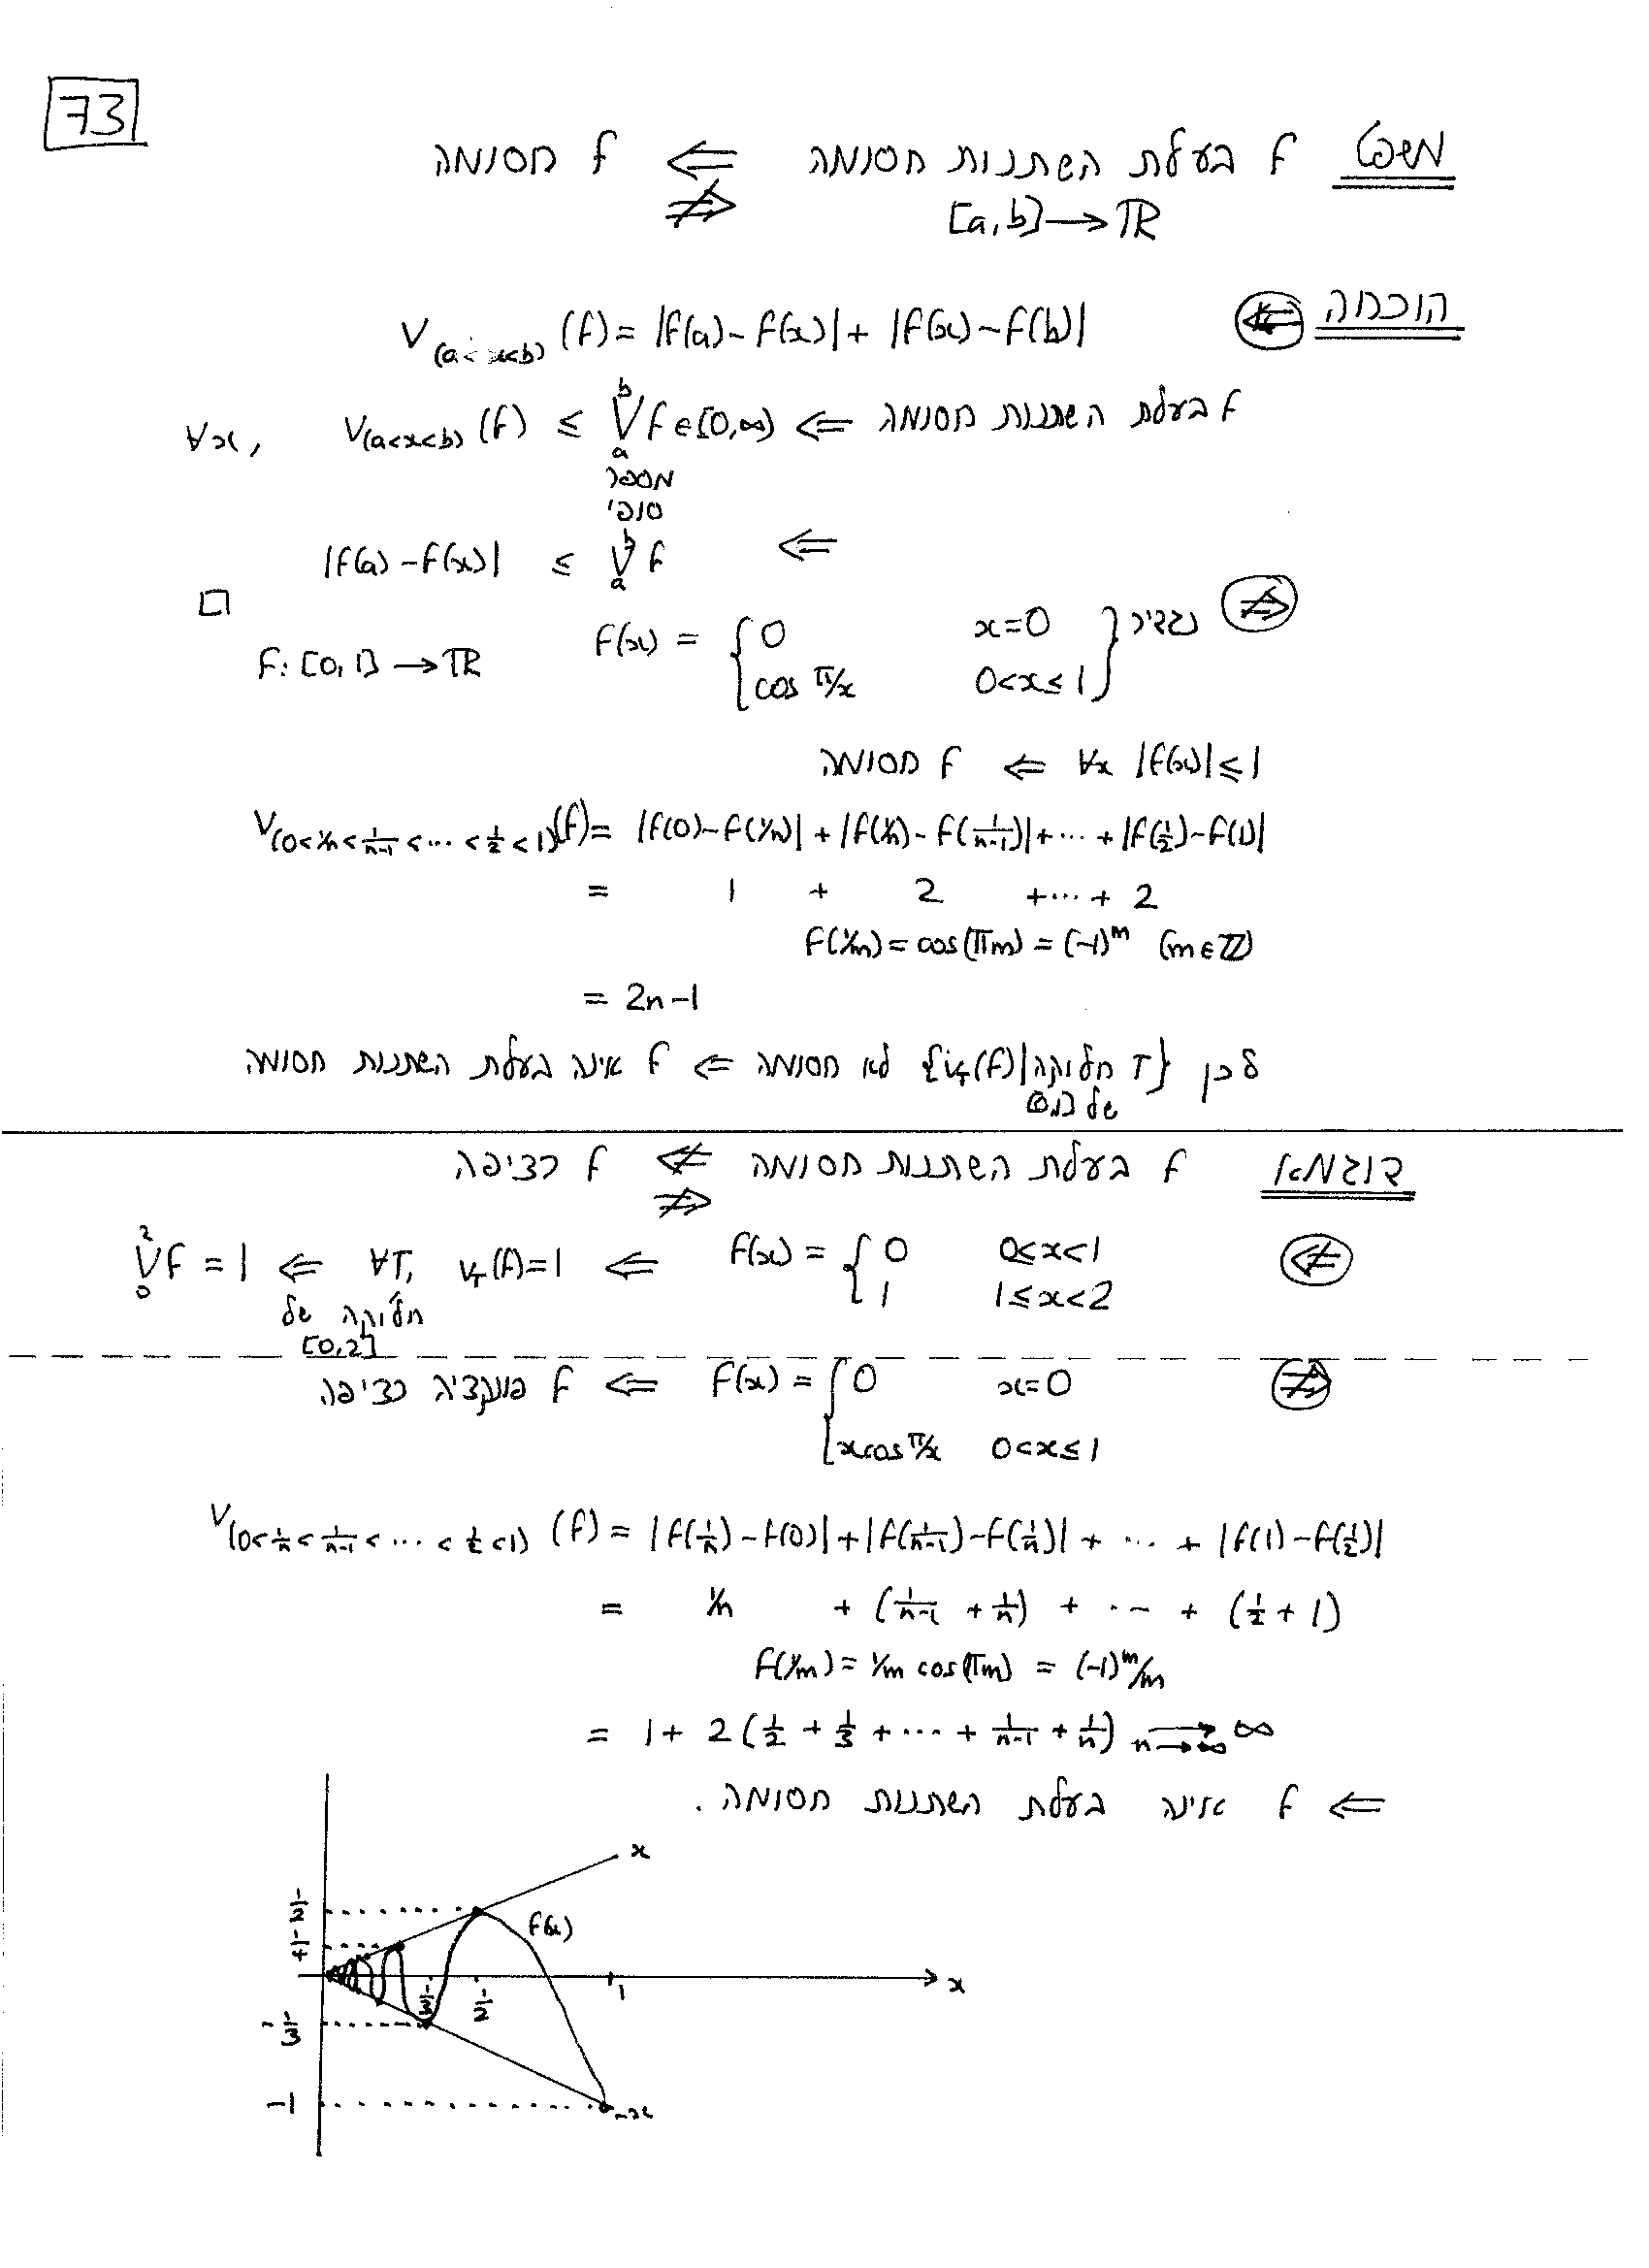 73
משפט f בעלת השתנות חסומה ⇐ f חסומה
[a,b]→ℝ ⇏
הוכחה ⇐ V_(a<x<b) (f) = |f(a)-f(x)| + |f(x)-f(b)|
f בעלת השתנות חסומה ⇐ V_(a<x<b) (f) ≤ V_a^b f ∈ [0,∞) ∀x,
מספר
סופי
⇐ |f(a)-f(x)| ≤ V_a^b f
□
⇏ נגדיר f(x) = { 0 x=0
cos π/x 0<x≤1 } f: [0,1] → ℝ
∀x |f(x)| ≤ 1 ⇐ f חסומה
V_(0<1/n<1/(n-1)<···<1/2<1) (f) = |f(0)-f(1/n)| + |f(1/n)-f(1/(n-1))| + ··· + |f(1/2)-f(1)|
= 1 + 2 + ··· + 2
f(1/m) = cos(πm) = (-1)^m (m∈ℤ)
= 2n-1
לכן {V_T(f) | חלוקה T} לא חסומה ⇐ f אינה בעלת השתנות חסומה
של [0,1]
דוגמא f בעלת השתנות חסומה ⇍ f רציפה
⇏
⇍ f(x) = { 0 0<x<1 ⇐ ∀T, V_T(f)=1 ⇐ V_0^2 f = 1
1 1≤x<2
חלוקה של
[0,2]
⇏ f(x) = { 0 x=0 ⇐ f פונקציה רציפה
x cos π/x 0<x≤1
V_(0<1/n<1/(n-1)<···<1/2<1) (f) = |f(1/n)-f(0)| + |f(1/(n-1))-f(1/n)| + ··· + |f(1)-f(1/2)|
= 1/n + (1/(n-1) + 1/n) + ··· + (1/2 + 1)
f(1/m) = 1/m cos(πm) = (-1)^m/m
= 1 + 2(1/2 + 1/3 + ··· + 1/(n-1) + 1/n) →_(n→∞) ∞
⇐ f אינה בעלת השתנות חסומה.
x
1/2
f(x)
1/4
1/3
1/2
1
x
-1/3
-1
-x